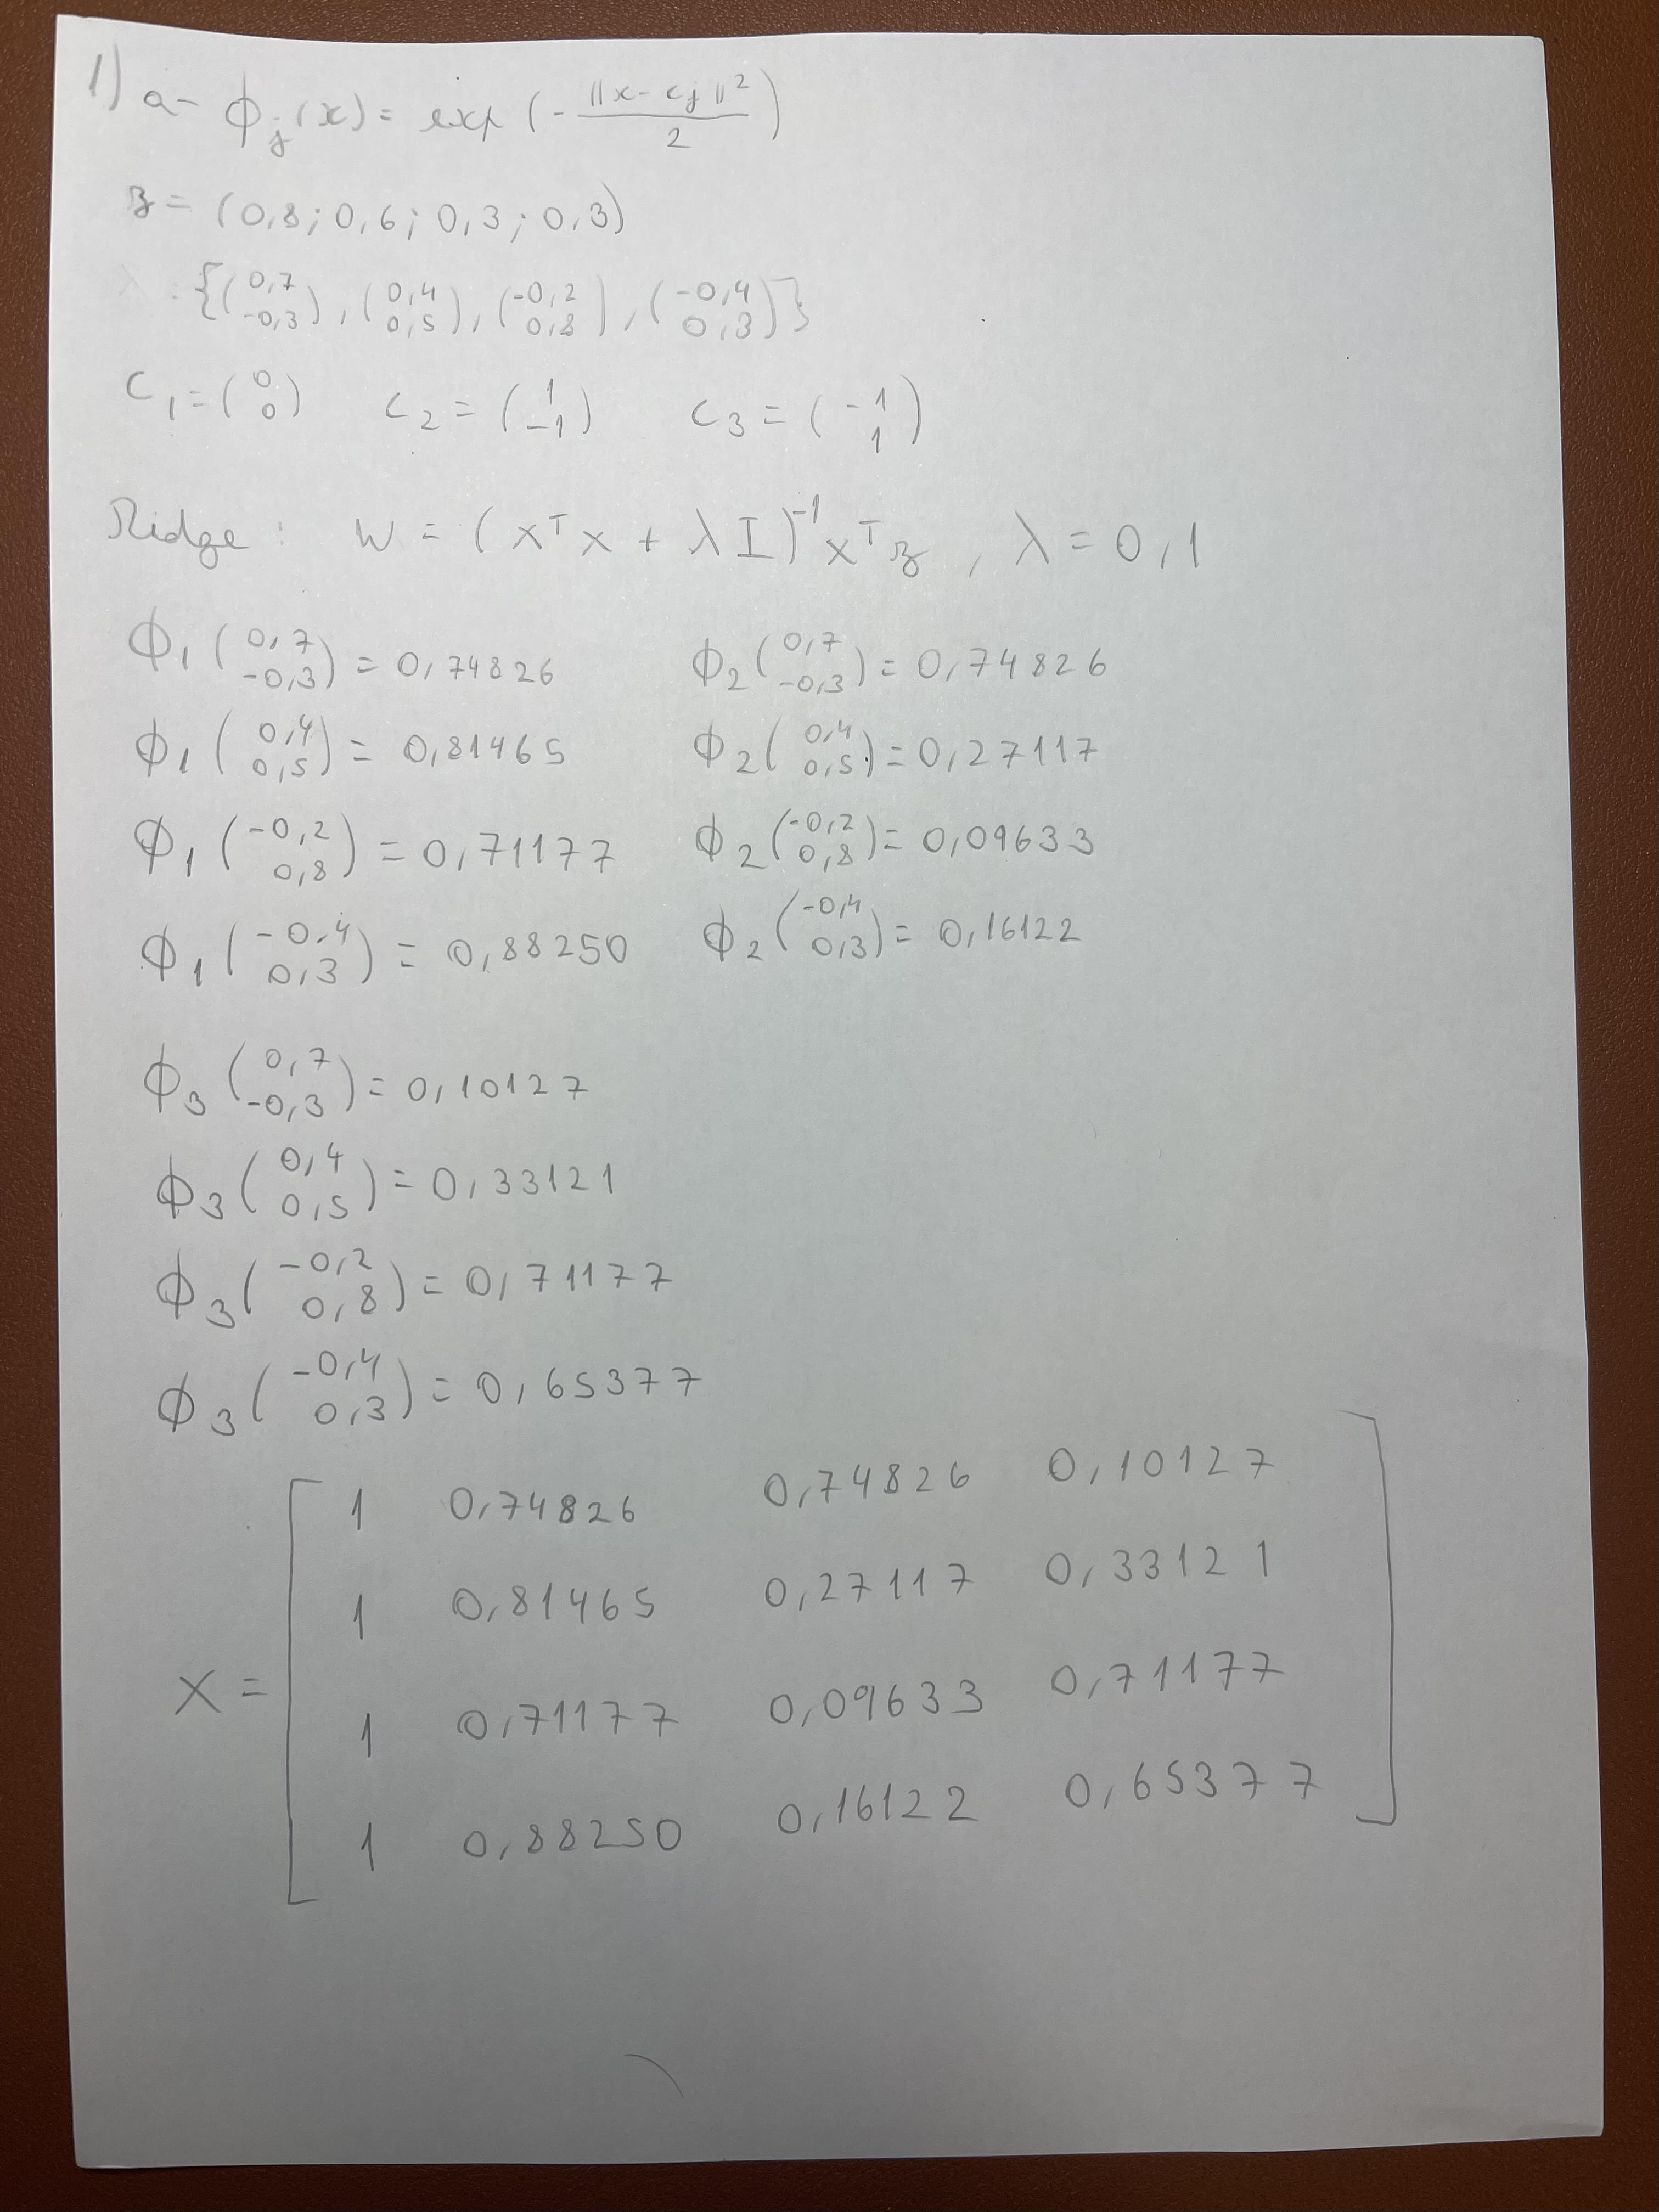 1) a- ϕj(x) = exp(- ||x - cj||² / 2)
z = (0,8; 0,6; 0,3; 0,3)
{(0,7 -0,3), (0,4 0,5), (-0,2 0,8), (-0,4 0,3)}
C1 = (0 0) C2 = (1 -1) C3 = (-1 1)
Ridge: W = (XᵀX + λI)⁻¹Xᵀz, λ = 0,1
ϕ1(0,7 -0,3) = 0,74826 ϕ2(0,7 -0,3) = 0,74826
ϕ1(0,4 0,5) = 0,81465 ϕ2(0,4 0,5) = 0,27117
ϕ1(-0,2 0,8) = 0,71177 ϕ2(-0,2 0,8) = 0,09633
ϕ1(-0,4 0,3) = 0,88250 ϕ2(-0,4 0,3) = 0,16122
ϕ3(0,7 -0,3) = 0,10127
ϕ3(0,4 0,5) = 0,33121
ϕ3(-0,2 0,8) = 0,71177
ϕ3(-0,4 0,3) = 0,65377
1 0,74826 0,74826 0,10127
1 0,81465 0,27117 0,33121
X =
1 0,71177 0,09633 0,71177
1 0,88250 0,16122 0,65377